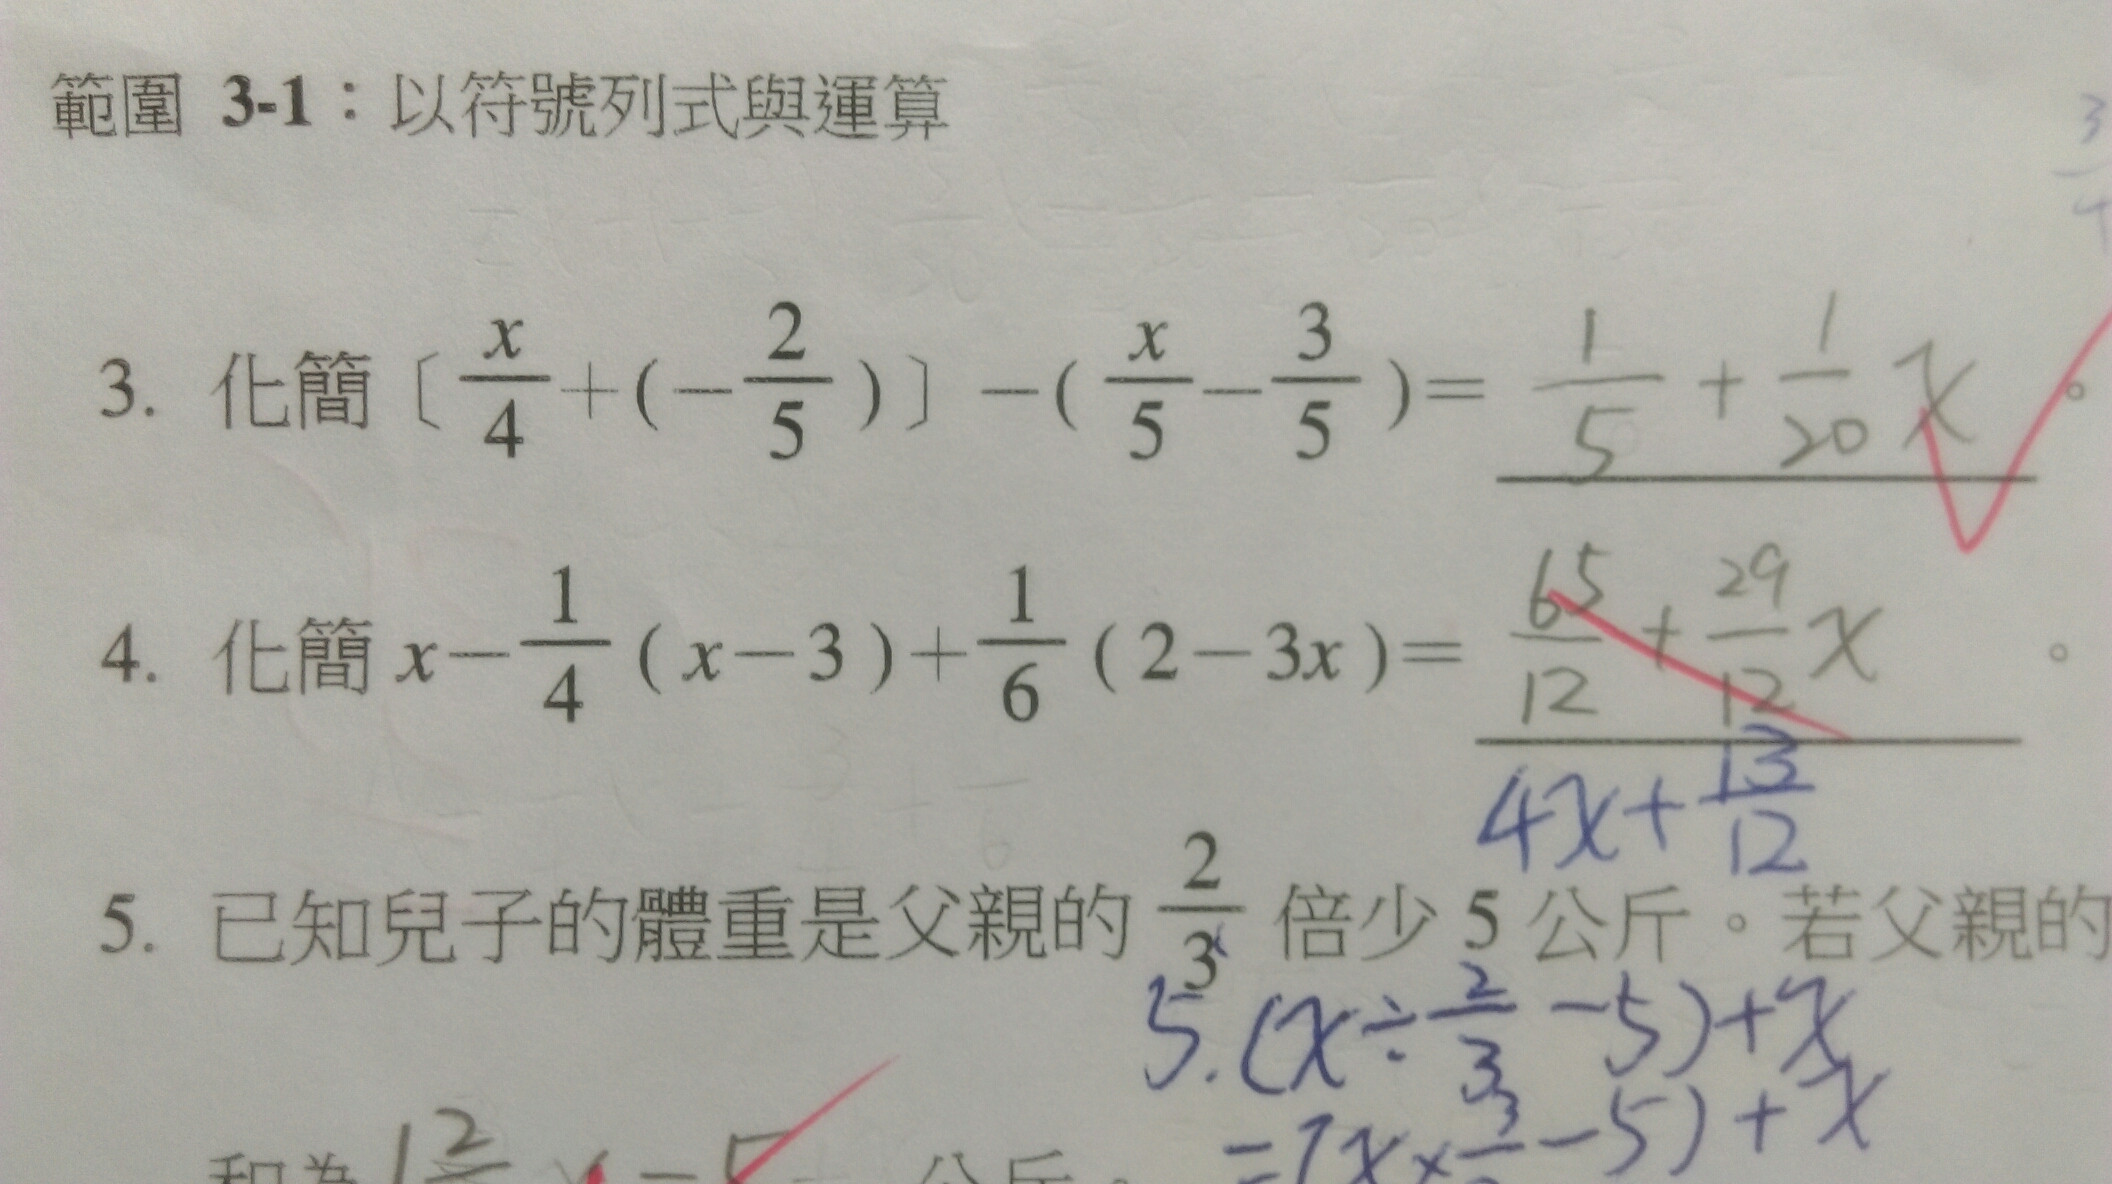 範圍 3-1：以符號列式與運算
3
4
3. 化簡〔x/4+(-2/5)〕-(x/5-3/5)= 1/5 + 1/20 x 。
4. 化簡 x-1/4(x-3)+1/6(2-3x)= 65/12 + 29/12 x 。
4x+13/12
5. 已知兒子的體重是父親的 2/3 倍少 5 公斤。若父親的
5. (x÷2/3-5)+x
-5)+x
和為 1 2 x-5 公斤。